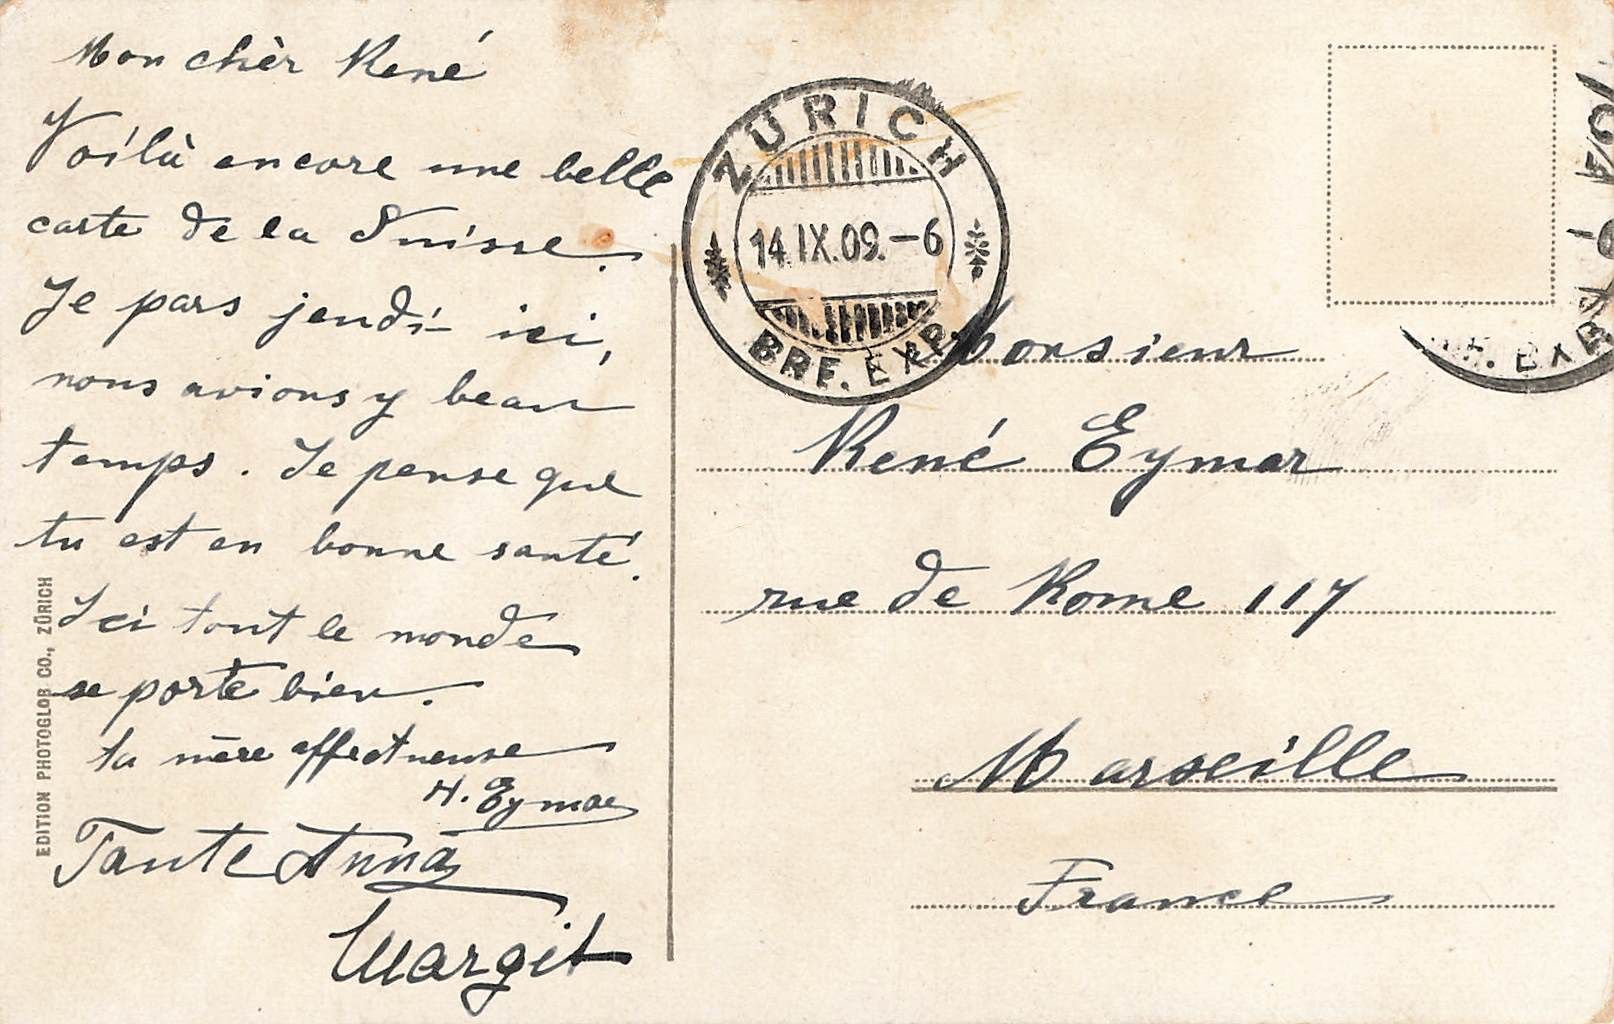 Mon chèr René
Voilà encore une belle
carte de la Suisse.
Je pars jeudi ici,
nous avions y beau
temps. Je pense que
tu est en bonne santé.
Ici tout le monde
se porte bien.
ta mère affectueuse
H. Eymar
Tante Anna
Margit
EDITION PHOTOGLOB CO., ZÜRICH
ZÜRICH
14.IX.09.-6
BRF. EXP.
Monsieur
René Eymar
rue de Rome 117
Marseille
France
BRF. EXP.